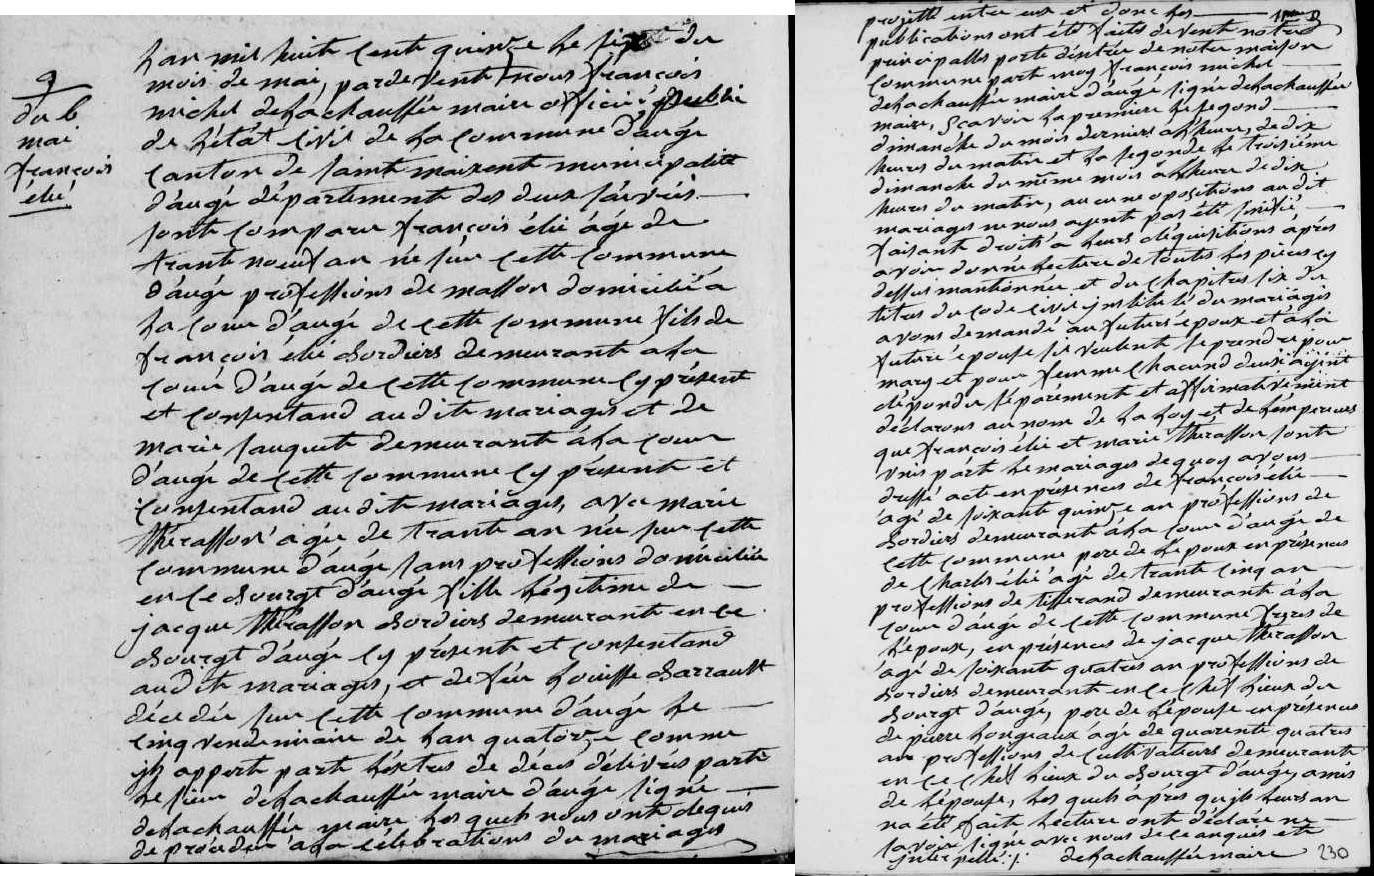 9
du 6
mai
françois
élié
Lan mil huit cent quinze le six du
mois de mai, pardevent nous françois
michel delachauffée maire officié publie
de létat civil de la commune daugé
canton de saint maixent municipalité
daugé département des deux saivres
sont comparu françois élié âgé de
trante noeuf an né sur cette commune
daugé professions de masson domicilié a
la cour daugé de cette commune fils de
françois élié bordiers demeurant à la
cour daugé de cette commune cy présent
et consentand audite mariages et de
marie sauquete demeurante à la cour
daugé de cette commune cy présente et
consentand audite mariages, avec marie
thérasson agée de trante an née sur cette
commune daugé sans professions domiciliée
en ce bourgt daugé fille légitime de
jacque thérasson bordiers demeurante en ce
bourgt daugé cy présente et consentand
audite mariages, et de féu louisse barrault
décédée sur cette commune daugé le
cinq vendemiaire de lan quatorze comme
ils apport parte lextres de déces délivrés parte
le sieur delachauffée maire daugé signé
delachauffée maire les quels nous onte dequis
de proceder à la célébrations du mariages
projetté enter eux et donc les
publications ont été faits devent notre
principalles porte déntrée de noter maison
commune part moy françois michel
delachauffée maire daugé signé delachauffée
maire, sçavoir la premiere le segond
dimanche du mois derniers a lheure, de dix
heures du matin et la segonde le troisiéme
dimanche du même mois a lheure de dix
heures du matin, aucune opositions audit
mariages ne nous ayent pas été sinifié
faisant droit a leurs réquisitions àprés
avoir donné lecture de toutes les pieces cy
dessus mantionnée et du chapitres six du
titres du code civil jntitulé du mariages
avons demandé au futurs époux et à la
future épouse sil veulent se prendre pour
mary et pour femme chacund deux ayent
répondu séparément et affirmativement
déclarons au nom de la loy et de lémpereurs
que françois élié et marie thérasson sonte
unis parte le mariages de quoy avons
dressé acte en présences de françois élié
agé de soixante quinze an professions de
bordiers demeurant à la cour daugé de
cette commune pere de lépoux en présences
de charles élié agé de trante cinq an
professions de tisserand demeurant à la
cour daugé de cette commune freres de
lépoux, en présences de jacque thérasson
agé de soixante quatres an professions de
bordiers demeurante en ce chef lieux du
bourgt daugé, pere de lépouse en présences
de pierre hongeaux agé de quarente quatres
an professions de cultivateurs demeurante
en ce chef lieux du bourgt daugé, amis
de lépouse, les quels àprés quils leurs an
na été faite lecture onte déclare ne
savoir signé avec nous de ce anquis été
jnterpellé ./.     delachauffée maire
230